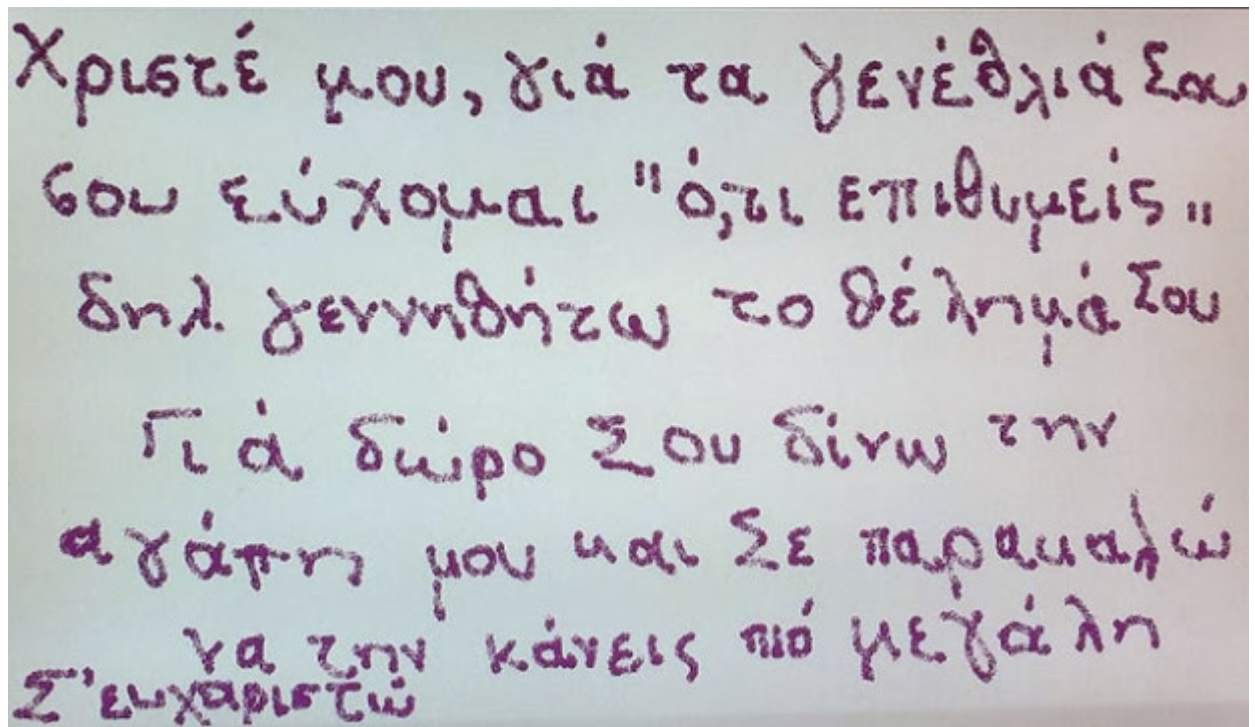 Χριστέ μου, γιά τα γενέθλιά Σου
σου εύχομαι "ό,τι επιθυμείς"
δηλ γεννηθήτω το θέλημά Σου
Γιά δώρο Σου δίνω την
αγάπη μου και Σε παρακαλώ
να την κάνεις πιό μεγάλη
Σ'ευχαριστώ